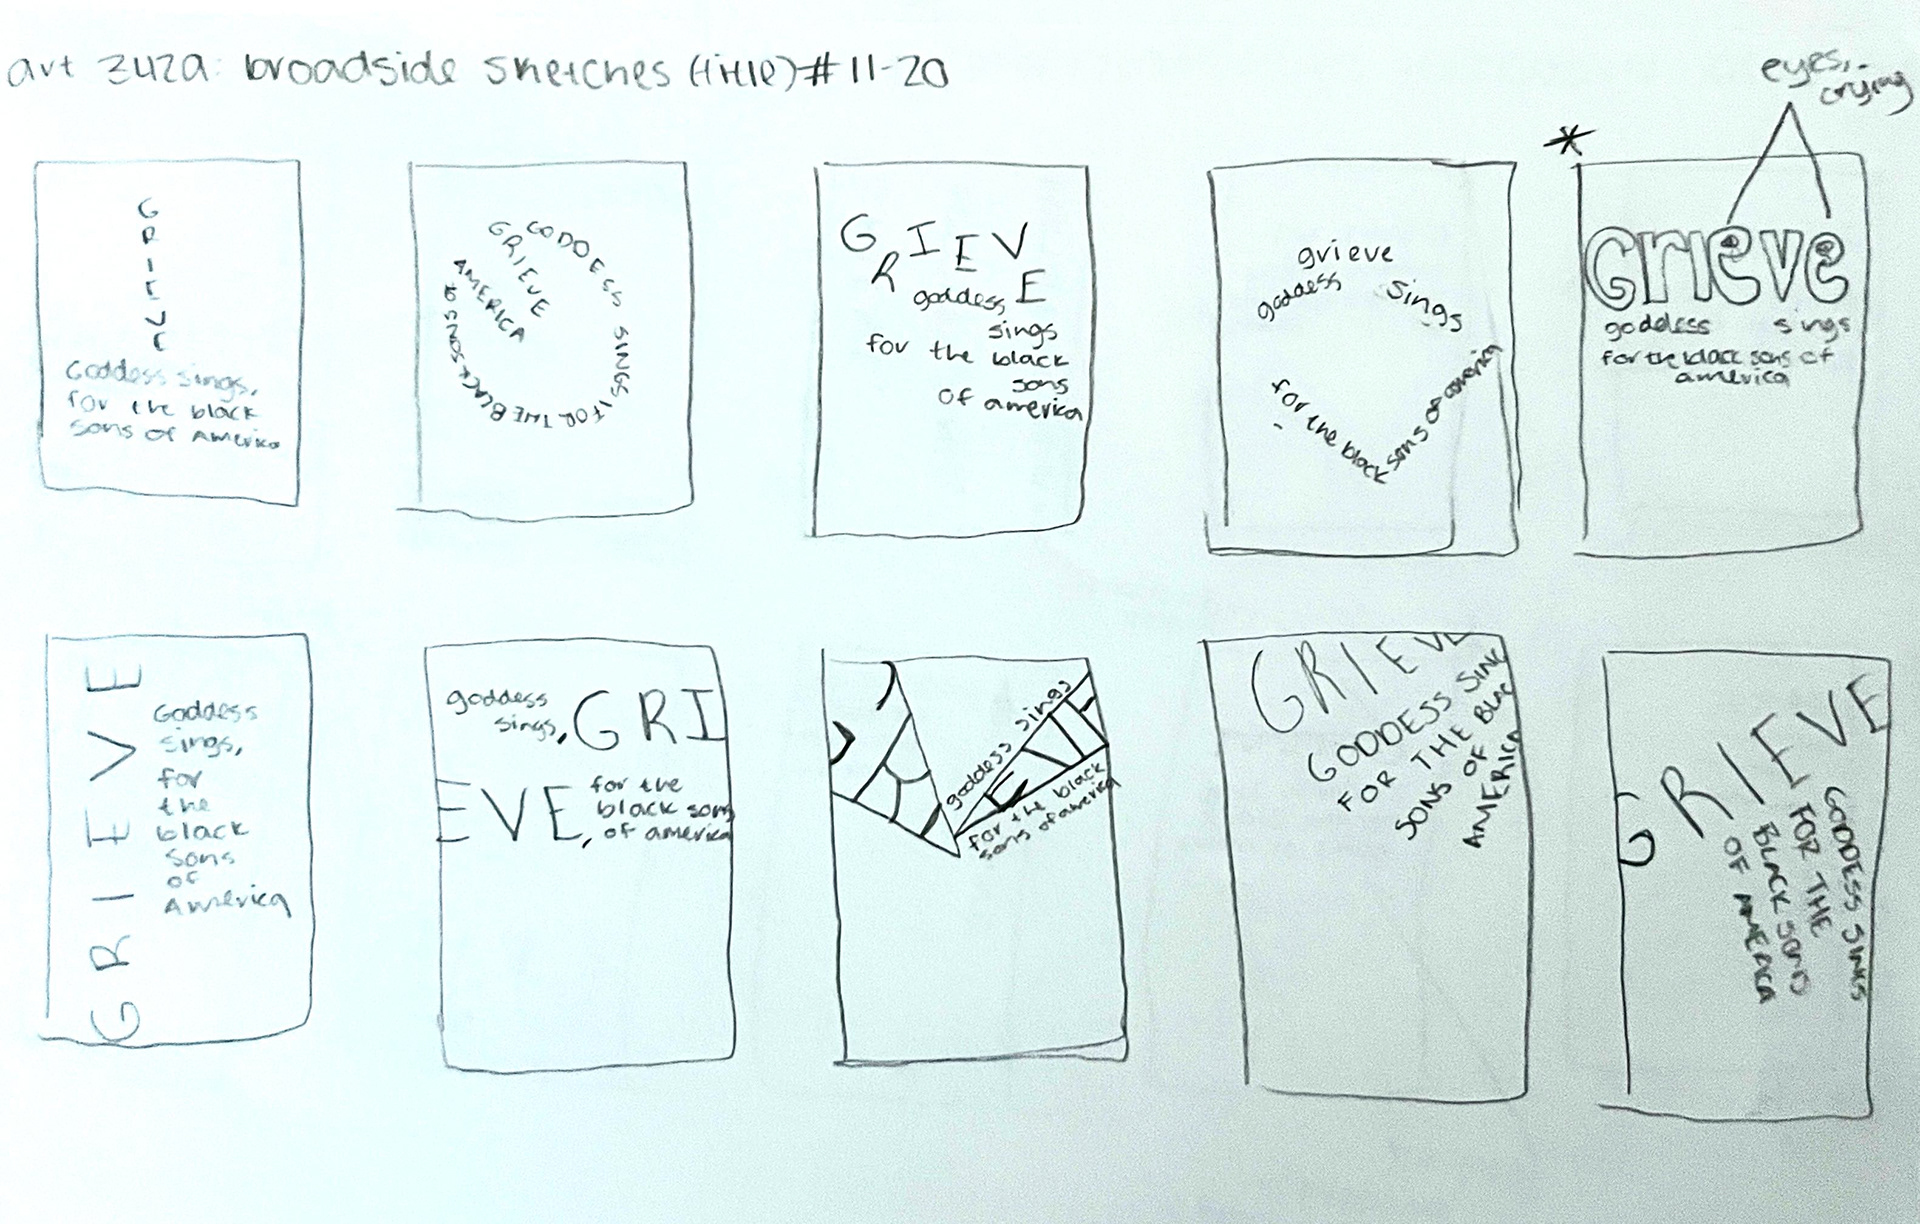 art 3421a: broadside sketches (title) # 11-20
eyes,
crying
*
G
R
I
E
V
E
Goddess sings,
for the black
sons of America
GRIEVE
GODDESS SINGS FOR THE BLACK SONS OF
AMERICA
GRIEVE
goddess,
sings
for the black
sons
of america
grieve
goddess sings
for the black sons of america
Grieve
goddess sings
for the black sons of
america
GRIEVE
Goddess
sings,
for
the
black
sons
of
America
goddess
sings, GRI
EVE,
for the
black sons
of america
goddess sings
for the black
sons of america
GRIEVE
GODDESS SING
FOR THE BLAC
SONS OF
AMERICA
GRIEVE
GODDESS SINGS
FOR THE
BLACK SONS
OF AMERICA